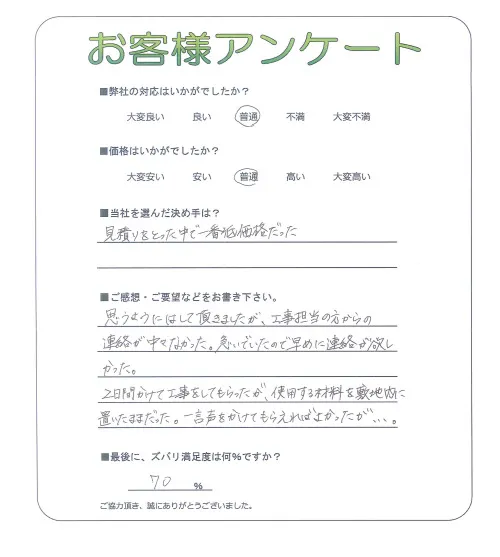 お客様アンケート
■弊社の対応はいかがでしたか?
大変良い 良い 普通 不満 大変不満
■価格はいかがでしたか?
大変安い 安い 普通 高い 大変高い
■当社を選んだ決め手は?
見積りをとった中で一番低価格だった
■ご感想・ご要望などをお書き下さい。
思うようにはして頂きましたが、工事担当の方からの
連絡が中々なかった。急いでいたので早めに連絡が欲し
かった。
2日間かけて工事をしてもらったが、使用する材料を敷地内に
置いたままだった。一言声をかけてもらえればよかったが、、、。
■最後に、ズバリ満足度は何%ですか?
70 %
ご協力頂き、誠にありがとうございました。